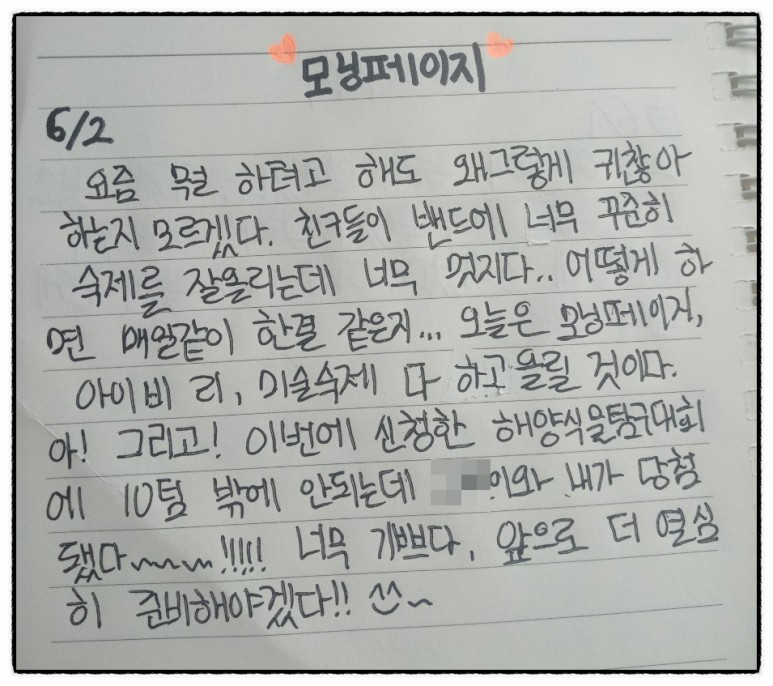 모닝페이지
6/2
요즘 뭘 하려고 해도 왜그렇게 귀찮아
하는지 모르겠다. 친구들이 밴드에 너무 꾸준히
숙제를 잘올리는데 너무 멋지다.. 어떻게 하
면 매일같이 한결 같은지... 오늘은 모닝페이지,
아이비 리, 미술숙제 다 하고 올릴 것이다.
아! 그리고! 이번에 신청한 해양식물탐구대회
에 10팀 밖에 안되는데 이와 내가 당첨
됐다~~~!!!!! 너무 기쁘다, 앞으로 더 열심
히 준비해야겠다!! ^^~